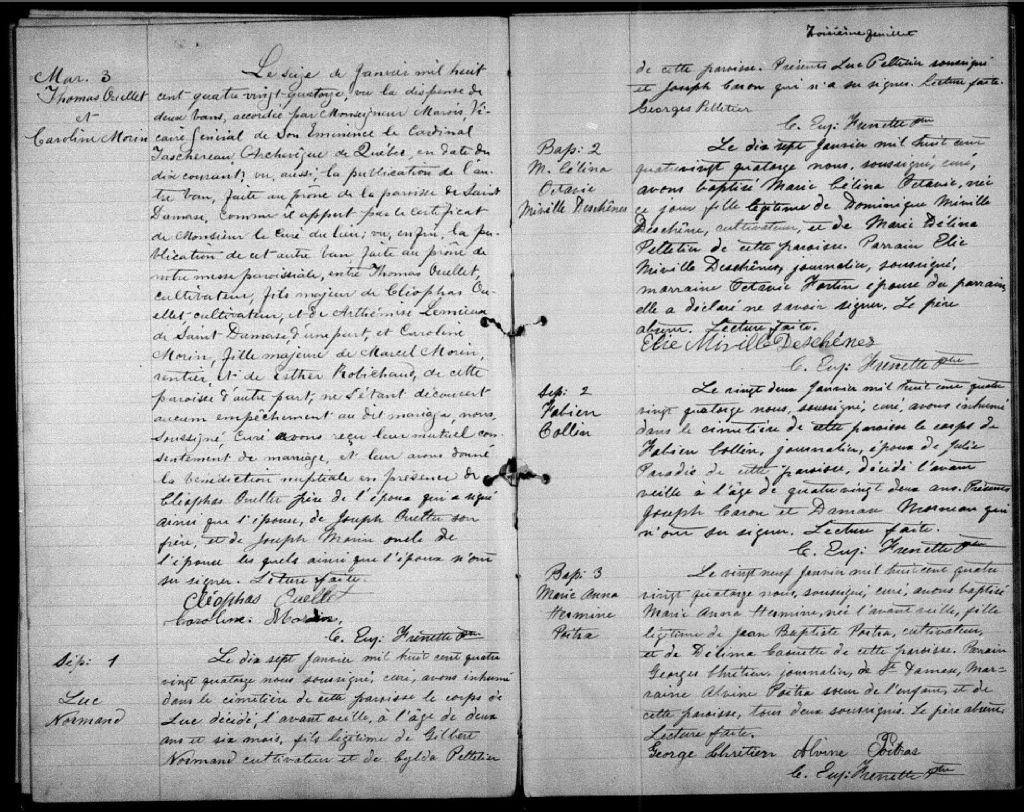 Mar. 3
Thomas Ouellet
et
Caroline Morin
Le seize de Janvier mil huit
cent quatre vingt-quatorze, vu la dispense de
deux bans, accordée par Monseigneur Marois, Vi-
caire Général de Son Eminence le Cardinal
Taschereau, Archevêque de Québec, en date du
dix courant; vu, aussi, la publication de l'au-
tre ban, faite au prône de la paroisse de Saint
Damase, comme il appert par le certificat
de Monsieur le Curé du lieu; vu, enfin, la pu-
blication de cet autre ban, faite au prône de
notre messe paroissiale, entre Thomas Ouellet,
cultivateur, fils majeur de Cléophas Ou-
ellet cultivateur, et de Arthémise Lemieux
de Saint Damase, d'une part, et Caroline
Morin, fille majeure de Marcel Morin,
rentier, et de Esther Robichaud, de cette
paroisse d'autre part; ne s'étant découvert
aucum empêchement au dit mariage, nous,
soussigné, Curé avons reçu leur mutuel con-
sentement de mariage, et leur avons donné
la bénédiction nuptiale en présence de
Cléophas Ouellet père de l'époux qui a signé
ainsi que l'épouse, de Joseph Ouellet son
frère, et de Joseph Morin oncle de
l'épouse les quels ainsi que l'époux n'ont
su signer. Lecture faite.
Cléophas Ouellet
Caroline Morin,
C. Eug: Frenette Ptre
Sép: 1
Luc
Normand
Le dix sept Janvier mil huit cent quatre
vingt quatorze nous soussigné, curé, avons inhumé
dans le cimetière de cette paroisse le corps de
Luc décédé, l'avant veille, à l'âge de deux
ans et six mois, fils légitime de Gilbert
Normand cultivateur et de Pelletier
Troisième feuillet
de cette paroisse. Présents Luc Pelletier soussigné
et Joseph Caron qui n'a su signer. Lecture faite.
Georges Pelletier
C. Eug: Frenette Ptre
Bap: 2
M. Célina
Octavie
Miville Deschênes
Le dix sept Janvier mil huit cent
quatrevingt quatorze nous, soussigné, curé,
avons baptisé Marie Célina Octavie, née
ce jour fille légitime de Dominique Miville
Deschêne, cultivateur, et de Marie Délina
Pelletier de cette paroisse. Parrain Elie
Miville Deschênes, journalier, soussigné,
marraine Octavie Fortin épouse du parrain,
elle a déclaré ne savoir signer. Le père
absent. Lecture faite.
Elie Miville Deschênes
C. Eug: Frenette Ptre
Sép: 2
Fabien
Collin
Le vingt deux Janvier mil huit cent quatre
vingt quatorze nous, soussigné, curé, avons inhumé
dans le cimetière de cette paroisse le corps de
Fabien Collin, journalier, époux de Julie
Paradis de cette paroisse, décédé l'avant
veille à l'âge de quatre vingt deux ans. Présents
Joseph Caron et Damase Morneau qui
n'ont su signer. Lecture faite.
C. Eug: Frenette Ptre
Bap: 3
Marie Anna
Hermine
Poitra
Le vingt neuf Janvier mil huit cent quatre
vingt quatorze nous, soussigné, curé, avons baptisé
Marie Anna Hermine, née l'avant veille, fille
légitime de Jean Baptiste Poitra, cultivateur,
et de Délima Caouette de cette paroisse. Parrain
Georges Chrétien, journalier, de St Damase, Mar-
raine Alvine Poitra soeur de l'enfant, et de
cette paroisse, tous deux soussignés. Le père absent.
Lecture faite.
George Chrétien Alvine Poitras
C. Eug: Frenette Ptre